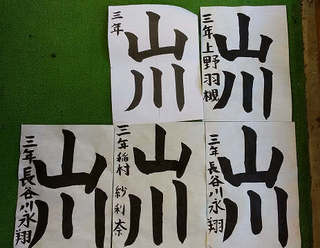 三年
山川
三年上野羽槻
山川
三年長谷川永翔
山川
三年稲村 紗利奈
山川
三年長谷川永翔
山川